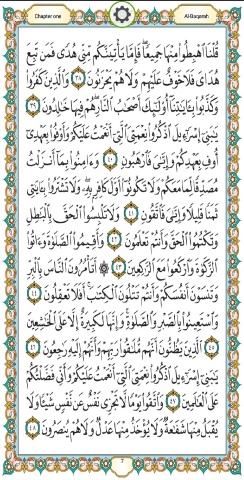 Chapter one
Al-Baqarah
قُلْنَا ٱهْبِطُوا۟ مِنْهَا جَمِيعًا فَإِمَّا يَأْتِيَنَّكُم مِّنِّى هُدًى فَمَن تَبِعَ
هُدَاىَ فَلَا خَوْفٌ عَلَيْهِمْ وَلَا هُمْ يَحْزَنُونَ ٣٨ وَٱلَّذِينَ كَفَرُوا۟
وَكَذَّبُوا۟ بِـَٔايَـٰتِنَآ أُو۟لَـٰٓئِكَ أَصْحَـٰبُ ٱلنَّارِ هُمْ فِيهَا خَـٰلِدُونَ ٣٩
يَـٰبَنِىٓ إِسْرَٰٓءِيلَ ٱذْكُرُوا۟ نِعْمَتِىَ ٱلَّتِىٓ أَنْعَمْتُ عَلَيْكُمْ وَأَوْفُوا۟ بِعَهْدِىٓ
أُوفِ بِعَهْدِكُمْ وَإِيَّـٰىَ فَٱرْهَبُونِ ٤٠ وَءَامِنُوا۟ بِمَآ أَنزَلْتُ
مُصَدِّقًا لِّمَا مَعَكُمْ وَلَا تَكُونُوٓا۟ أَوَّلَ كَافِرٍۭ بِهِۦ وَلَا تَشْتَرُوا۟ بِـَٔايَـٰتِى
ثَمَنًا قَلِيلًا وَإِيَّـٰىَ فَٱتَّقُونِ ٤١ وَلَا تَلْبِسُوا۟ ٱلْحَقَّ بِٱلْبَـٰطِلِ
وَتَكْتُمُوا۟ ٱلْحَقَّ وَأَنتُمْ تَعْلَمُونَ ٤٢ وَأَقِيمُوا۟ ٱلصَّلَوٰةَ وَءَاتُوا۟
ٱلزَّكَوٰةَ وَٱرْكَعُوا۟ مَعَ ٱلرَّٰكِعِينَ ٤٣ ۞ أَتَأْمُرُونَ ٱلنَّاسَ بِٱلْبِرِّ
وَتَنسَوْنَ أَنفُسَكُمْ وَأَنتُمْ تَتْلُونَ ٱلْكِتَـٰبَ أَفَلَا تَعْقِلُونَ ٤٤
وَٱسْتَعِينُوا۟ بِٱلصَّبْرِ وَٱلصَّلَوٰةِ وَإِنَّهَا لَكَبِيرَةٌ إِلَّا عَلَى ٱلْخَـٰشِعِينَ
٤٥ ٱلَّذِينَ يَظُنُّونَ أَنَّهُم مُّلَـٰقُوا۟ رَبِّهِمْ وَأَنَّهُمْ إِلَيْهِ رَٰجِعُونَ ٤٦
يَـٰبَنِىٓ إِسْرَٰٓءِيلَ ٱذْكُرُوا۟ نِعْمَتِىَ ٱلَّتِىٓ أَنْعَمْتُ عَلَيْكُمْ وَأَنِّى فَضَّلْتُكُمْ
عَلَى ٱلْعَـٰلَمِينَ ٤٧ وَٱتَّقُوا۟ يَوْمًا لَّا تَجْزِى نَفْسٌ عَن نَّفْسٍ شَيْـًٔا وَلَا
يُقْبَلُ مِنْهَا شَفَـٰعَةٌ وَلَا يُؤْخَذُ مِنْهَا عَدْلٌ وَلَا هُمْ يُنصَرُونَ ٤٨
7